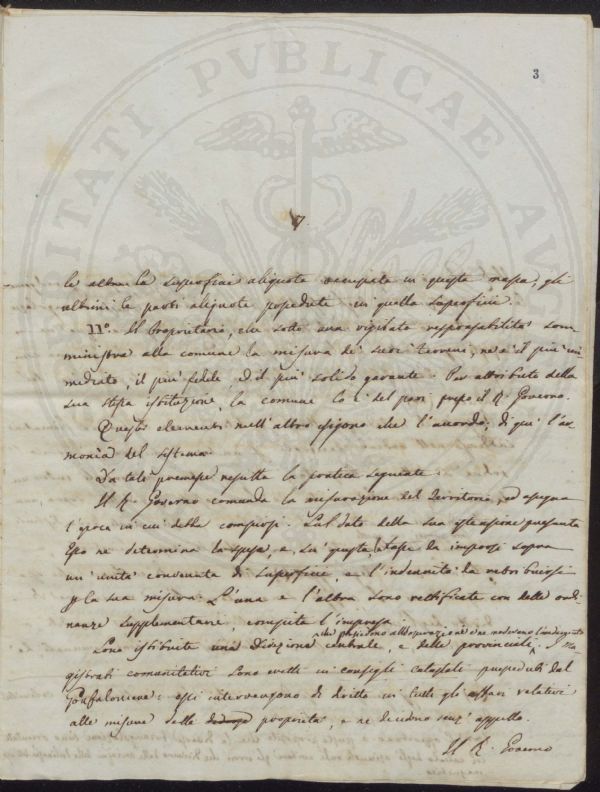 UTILITATI PVBLICAE AVSP
3
7.
le altre la superficie aliquote occupate in questa massa, gli
ultimi le parti aliquote possedute in quella superficie.
11.° Il Proprietario, che sotto una vigilata responsabilità som-
ministra alla comune la misura de' suoi terreni, ne è il più im-
mediato, il più fedele, ed il più solido garante. Per attributo della
sua stessa istituzione, la comune lo è del pari presso il R. Governo.
Questi elementi nell'altro esigono che l'accordo; di qui l'ar-
monia del sistema.
Da tali premesse risulta la pratica seguente.
Il R. Governo comanda la misurazione del Territorio, ed assegna
l'epoca in cui debba compirsi. Sul dato della sua estensione presunta
Esso ne determina la spesa, e su questa, la tassa da imporsi sopra
un' unità convenuta di superficie, e l'indennità da retribuirsi
p la sua misura. L'una e l'altra sono rettificate con delle ordi-
nanze supplementarie, compita l'impresa.
che presiedono all'operazione e ne
Sono istituite una Divisione centrale, e delle provinciali, I Ma-
gistrati comunitativi sono eretti in consigli catastali preseduti dal
Gonfaloniere: essi intervengono di diritto in tutti gli affari relativi
alle misure delle proprietà, e ne decidono senz' appello.
Il R. Governo